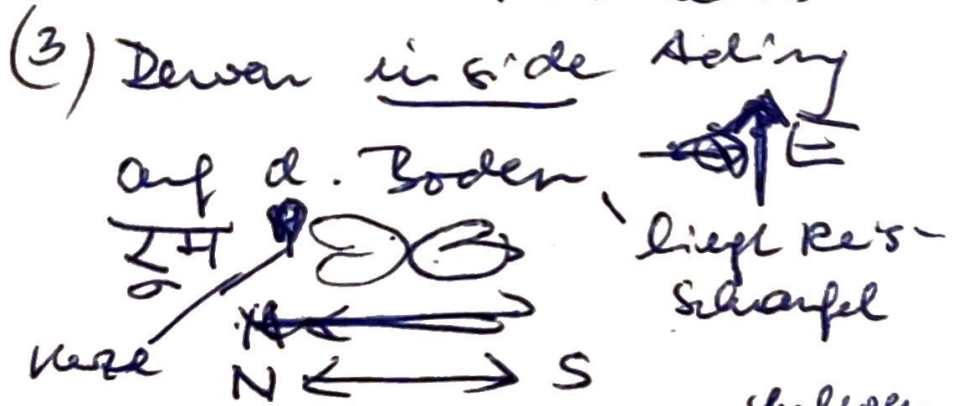 (3) Dewar inside
auf d. Boden E
liegt Reis-
schaufel
Kerze
N S